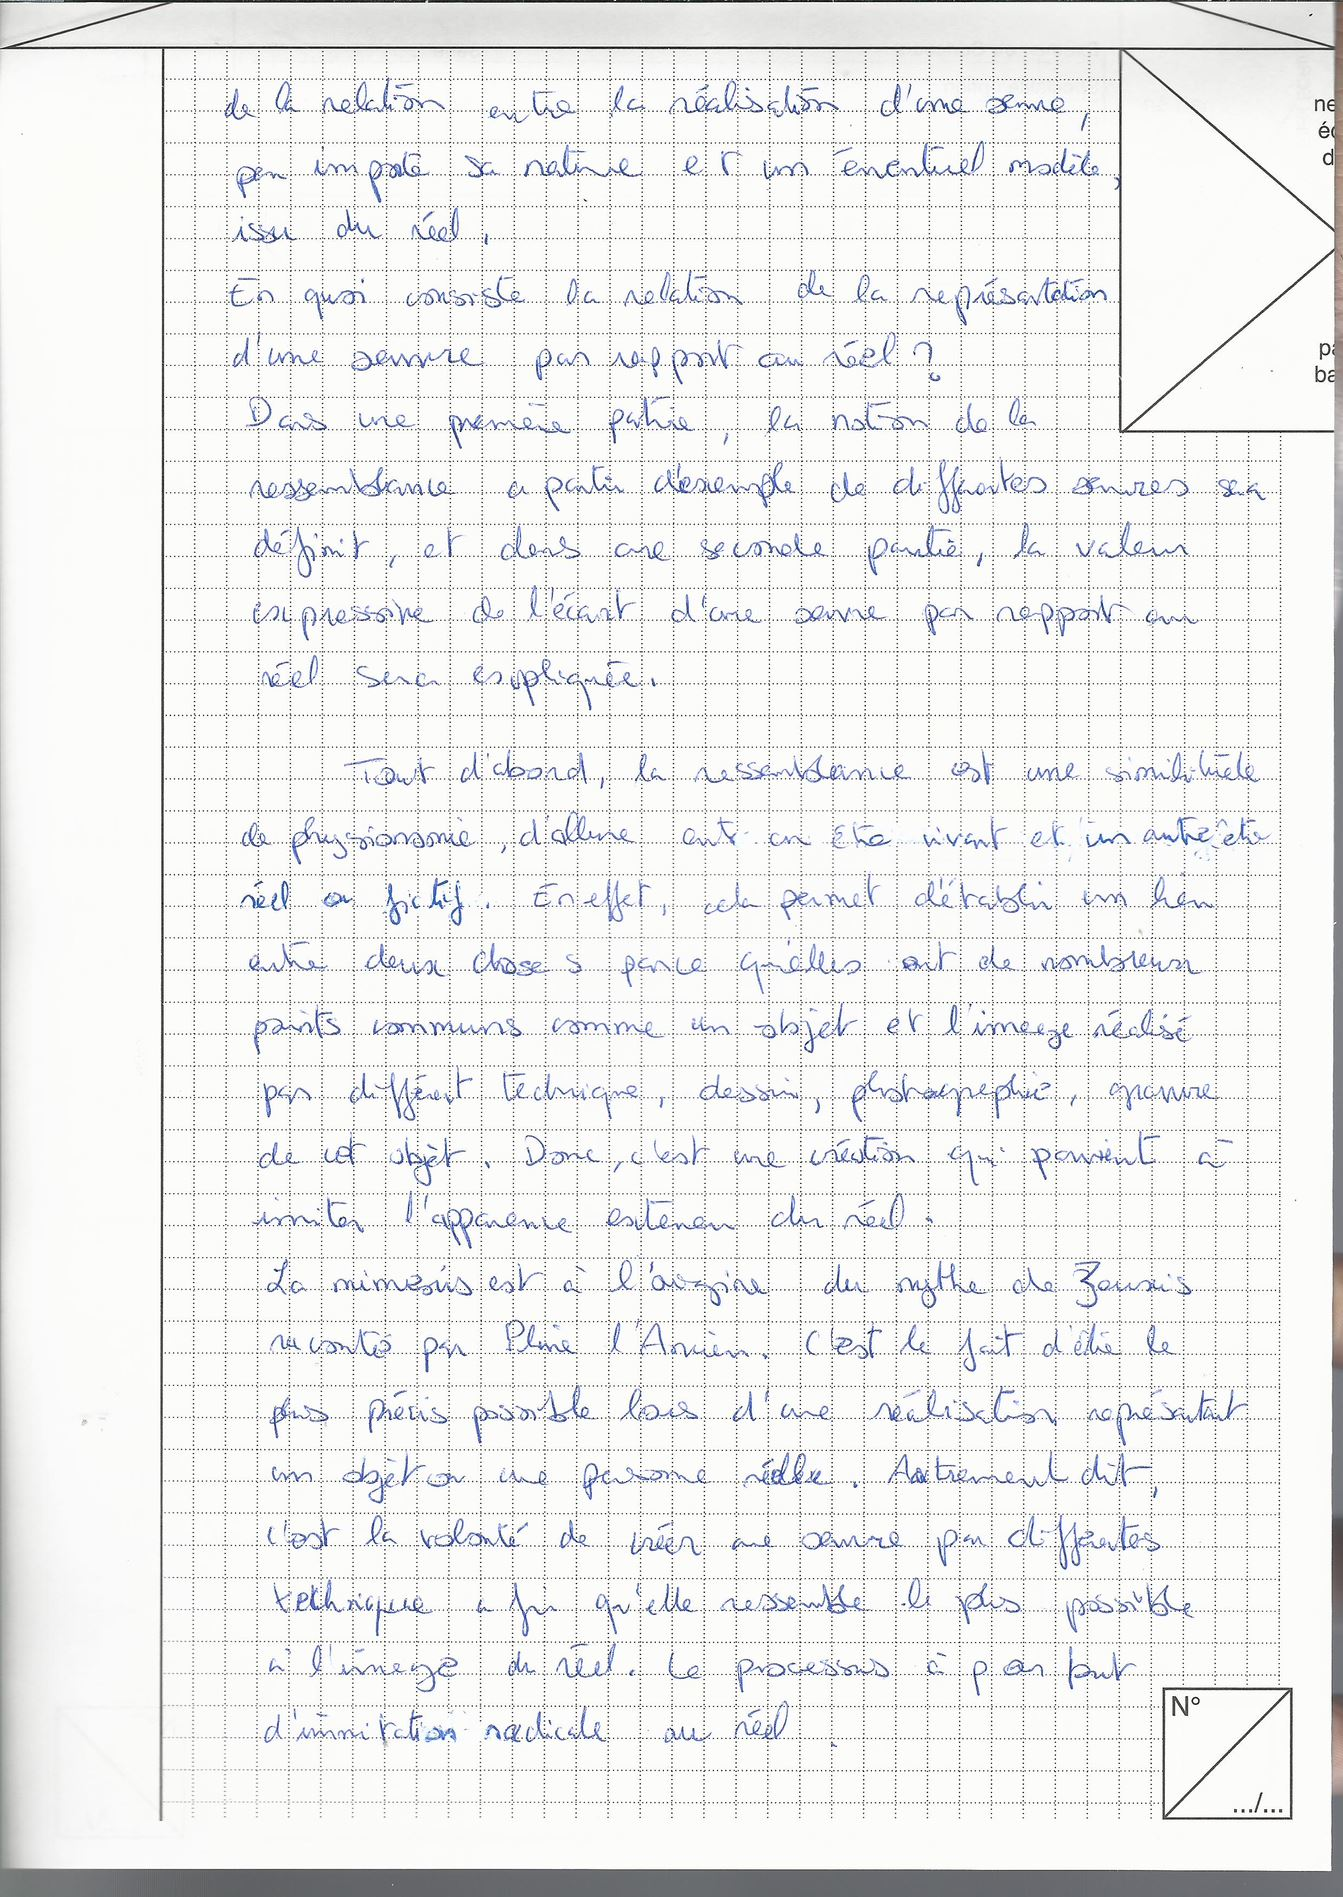 de la relation entre la réalisation d'une oeuvre,
peu importe sa nature et un éventuel modèle,
issu du réel.
En quoi consiste la relation de la représentation
d'une oeuvre par rapport au réel ?
Dans une première partie, la notion de la
ressemblance a partir d'exemple de différentes oeuvres sera
définit, et dans une seconde partie, la valeur
expressive de l'écart d'une oeuvre par rapport au
réel sera expliquée.
Tout d'abord, la ressemblance est une similitude
de physionomie, d'allure entre un être vivant et un autre être
réel ou fictif. En effet, cela permet d'établir un lien
entre deux choses parce qu'elles ont de nombreux
points communs comme un objet et l'image réalisé
par différent technique, dessin, photographie, gravure
de cet objet. Donc, c'est une création qui parvient à
imiter l'apparence exterieur du réel.
La mimesis est à l'origine du mythe de Zeuxis
raconté par Pline l'Ancien. C'est le fait d'être le
plus précis possible lors d'une réalisation représentant
un objet ou une personne réelle. Autrement dit,
c'est la volonté de créer une oeuvre par différentes
technique a fin qu'elle ressemble le plus possible
à l'image du réel. Le processus à pour but
d'immitation radicale au réel.
N°
.../...
ne
éc
d
pa
ba